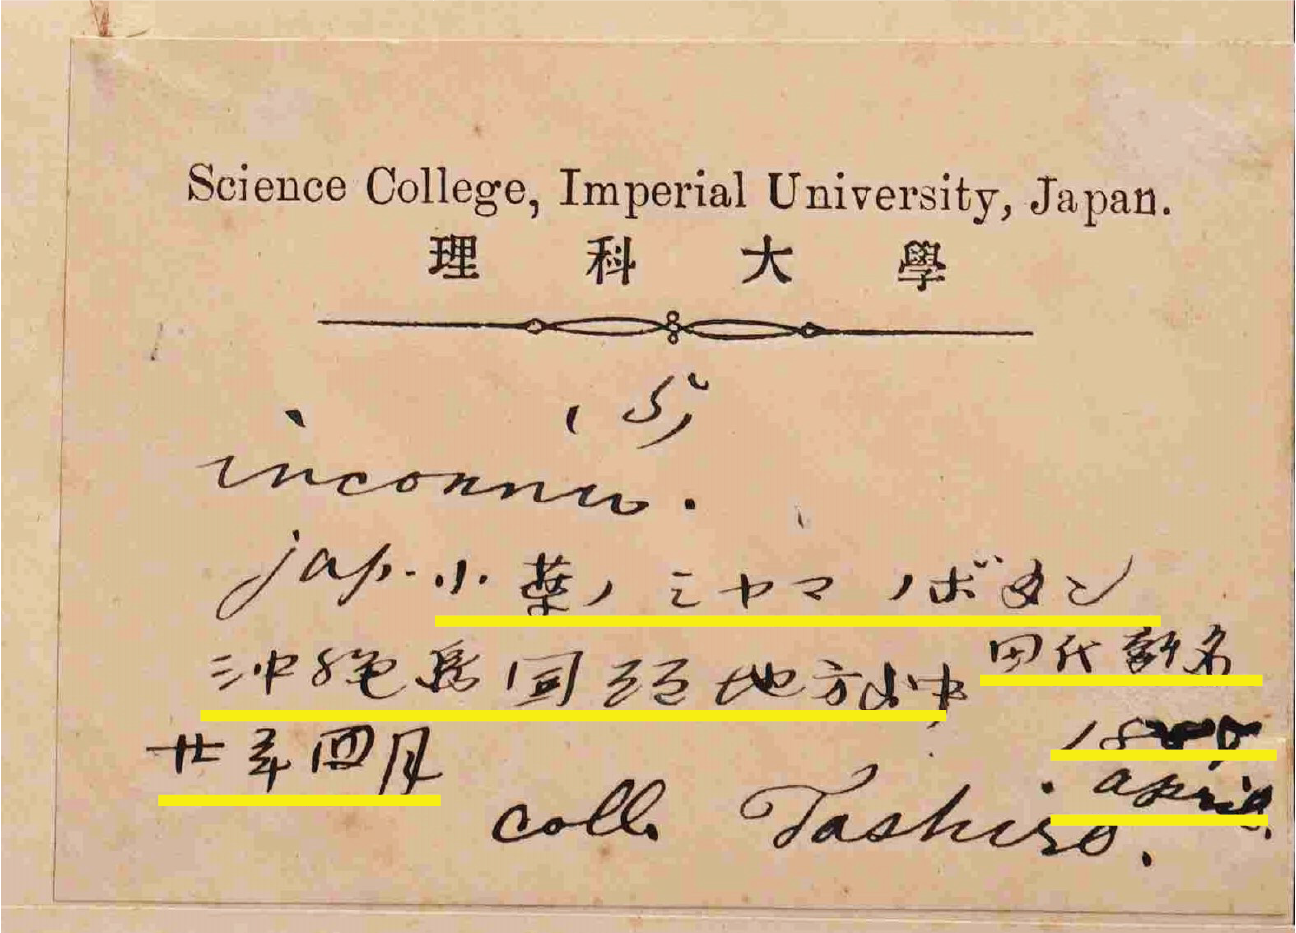 Science College, Imperial University, Japan.
理科大學
(5)
inconnu.
jap. 小葉ノミヤマノボタン
田代新名
沖縄島国頭地方山中
廿年四月
april.
coll. Tashiro.